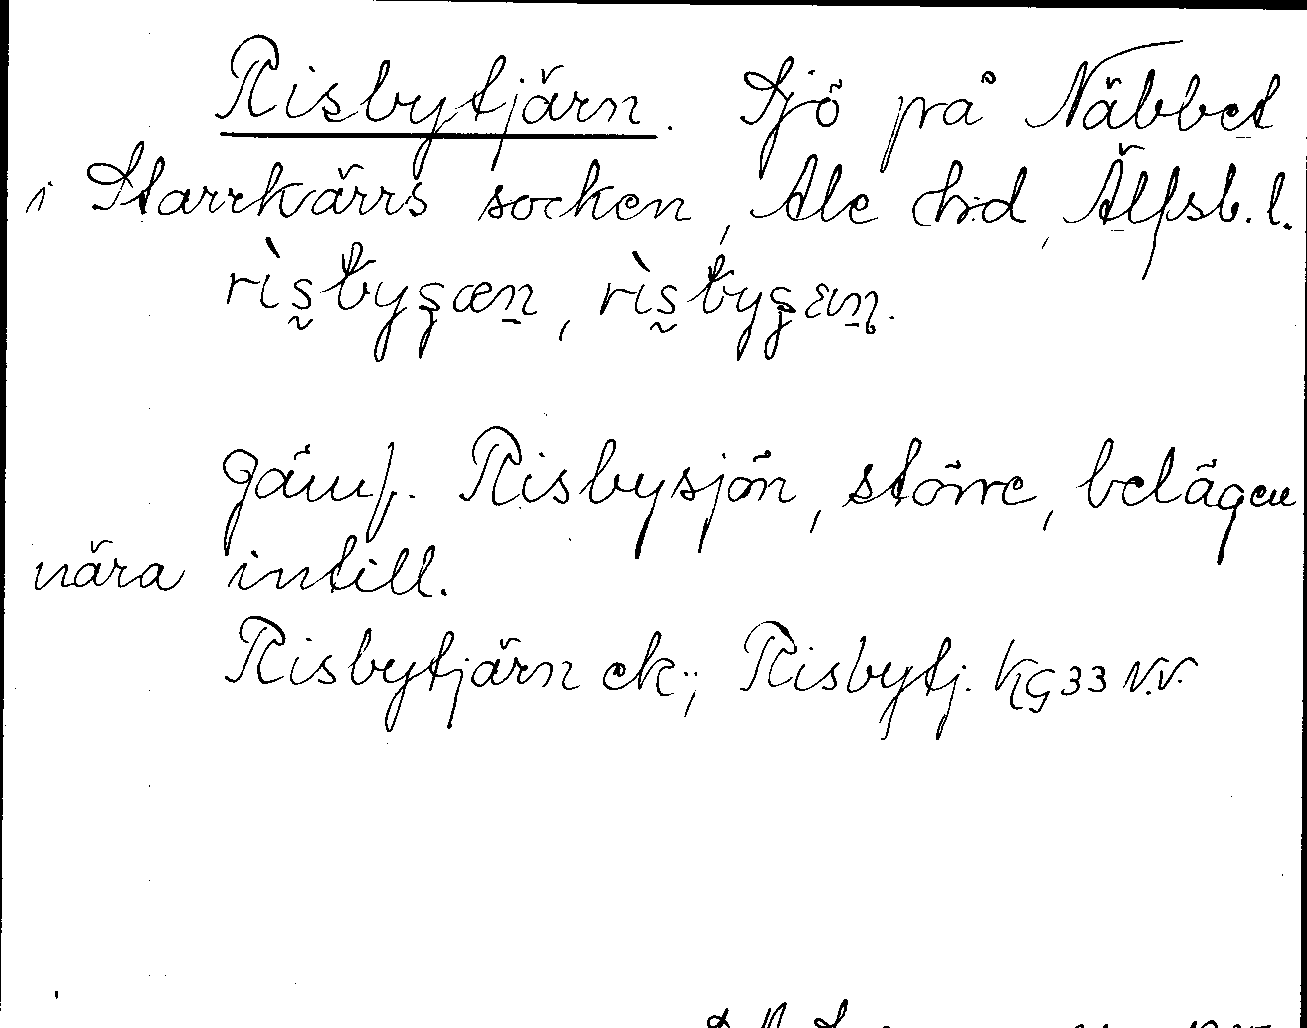 Risbytjärn. Sjö på Näbbet
i Starrkärrs socken, Ale hd, Älfsb. l.
rìsbyʂæn, rìsbyʂæn.
Jämf. Risbysjön, större, belägen
nära intill.
Risbytjärn ek.; Risbytj. KG 33 N.V.